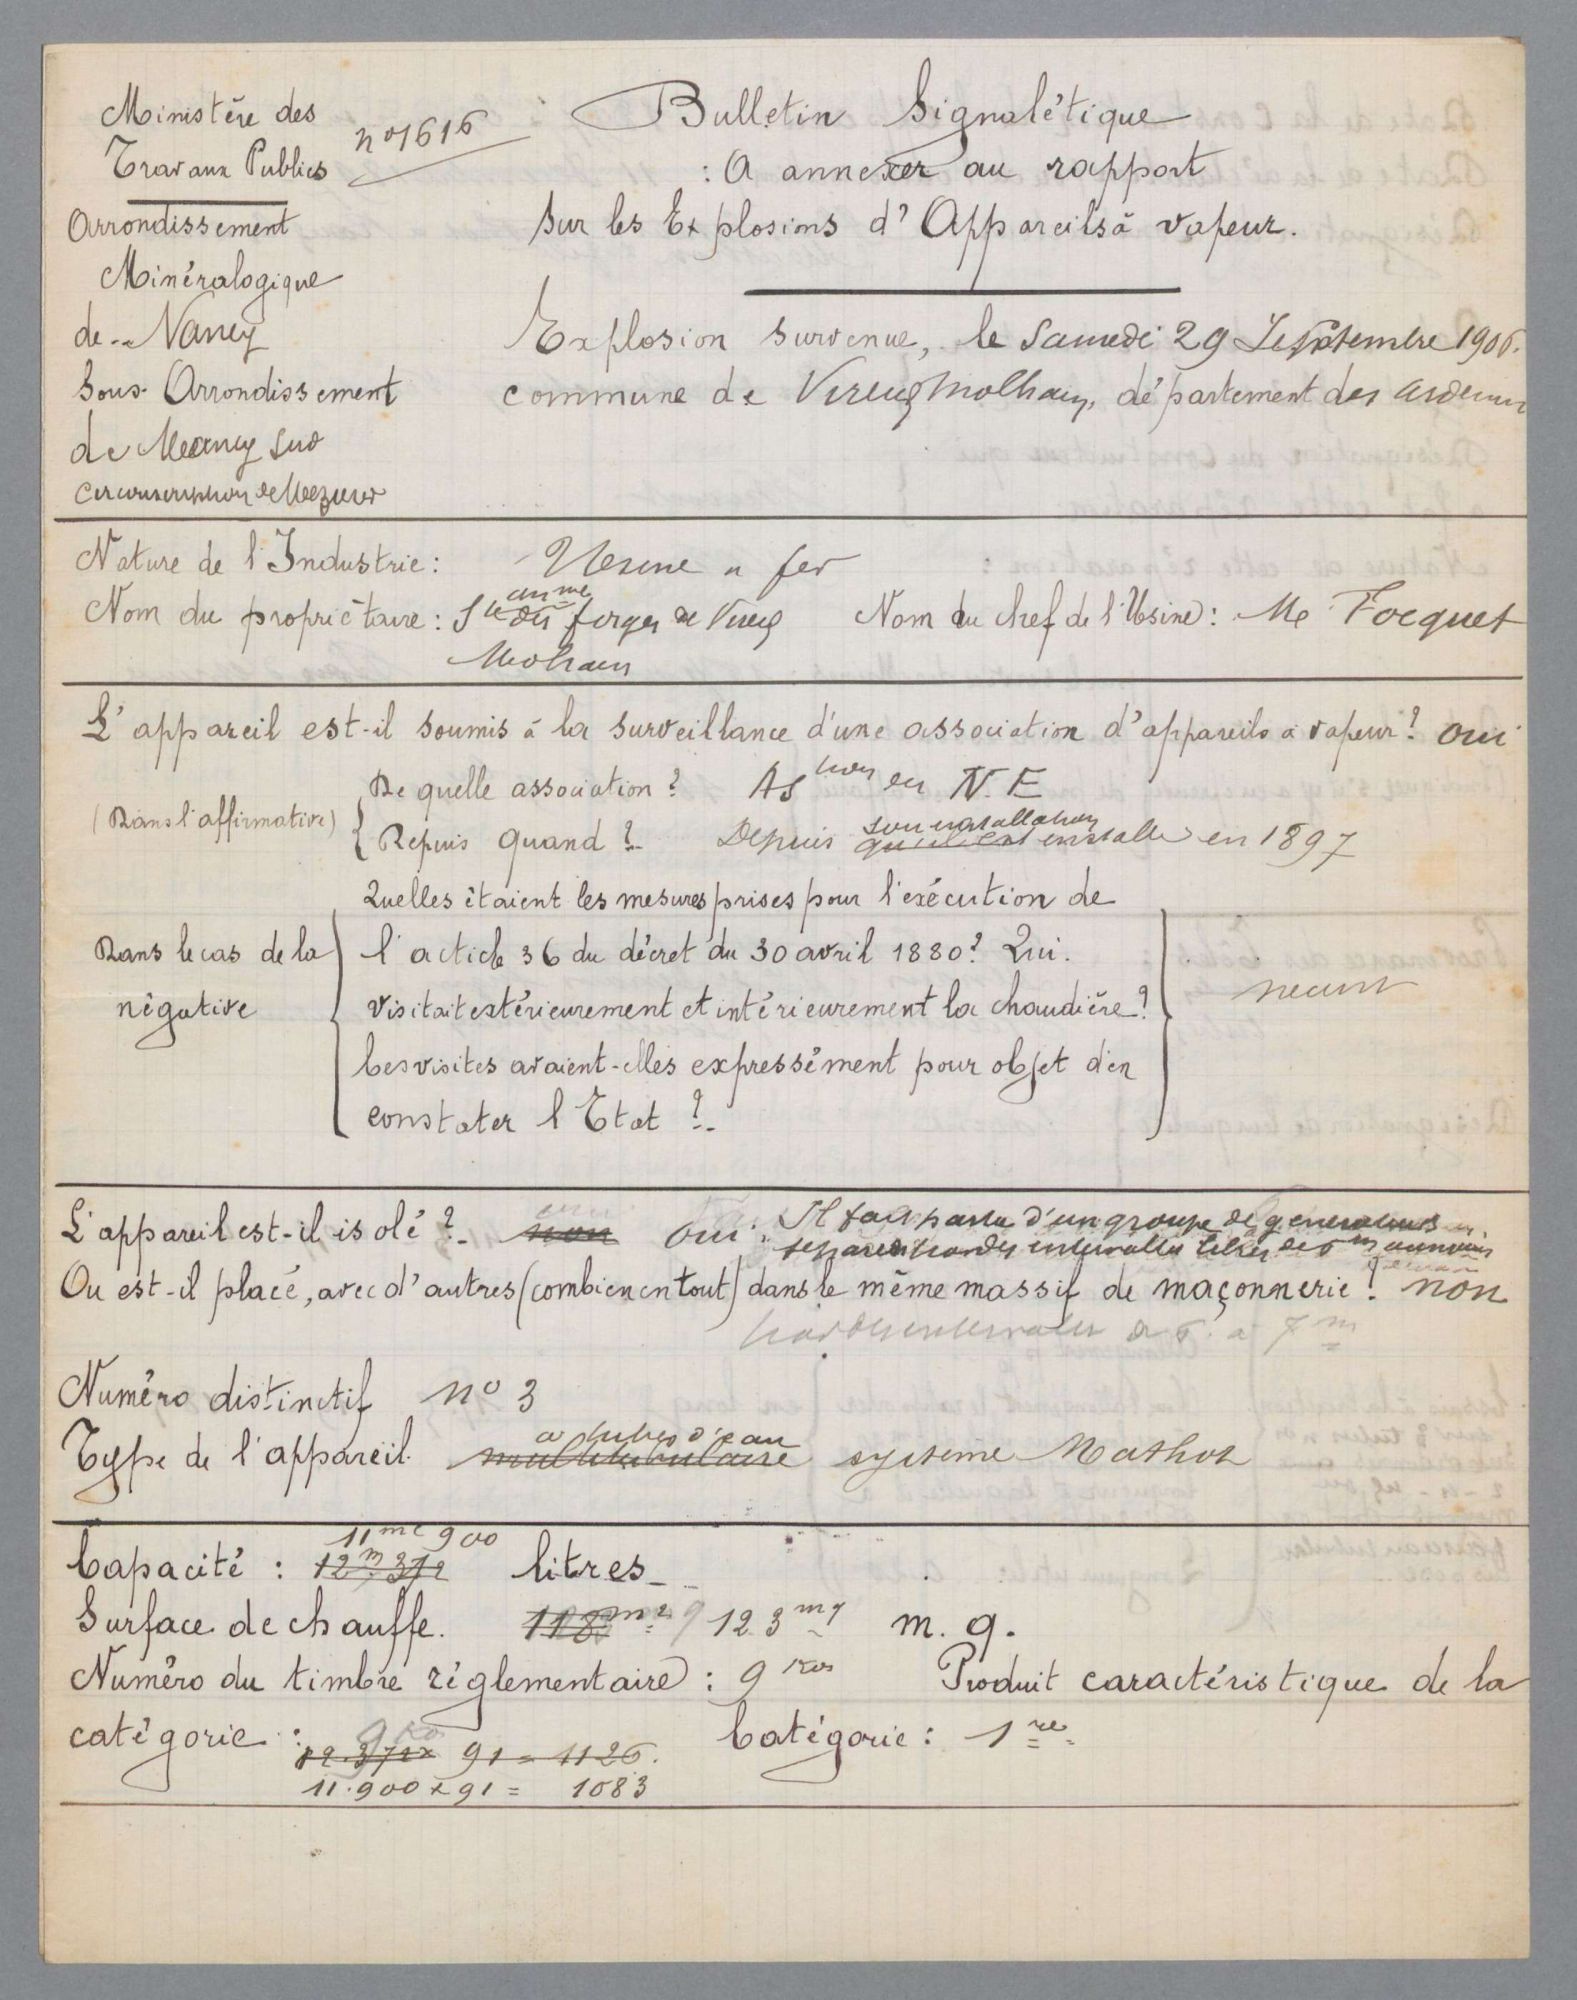 Ministère des
Travaux Publics
no 1616
Arrondissement
Minéralogique
de Nancy
Sous-Arrondissement
de Nancy Sud
Circonscription de Mezieres
Bulletin Signalétique
: A annexer au rapport
Sur les Explosions d'Appareils à vapeur.
Explosion survenue, le Samedi 29 Septembre 1906.
commune de Vireux Molhain, département des Ardennes
Nature de l'Industrie : Usine a fer
Nom du propriétaire : Sté anme des forges de Vireux Nom du chef de l'Usine : Mr Focquet
Molhain
L'appareil est-il soumis à la surveillance d'une association d'appareils à vapeur ? oui
(Dans l'affirmative)
De quelle association ? Astion du N.E
Depuis quand ? Depuis son installation qu'il est installé en 1897
Quelles étaient les mesures prises pour l'exécution de
Dans le cas de la
négative
l'article 36 du décret du 30 avril 1880 ? Qui
visitait extérieurement et intérieurement la chaudière ?
Les visites avaient-elles expressément pour objet d'en
constater l'Etat ?
neant
L'appareil est-il isolé ? non oui. Il fait partie d'un groupe de generateurs
separés par des intervalles libres de 6m au moins
Ou est-il placé, avec d'autres (combien en tout) dans le même massif de maçonnerie ? non
par des intervalles de 6 à 7 m
Numéro distinctif no 3
a tubes d'eau
Type de l'appareil multitubulaire systeme Mathot
11mc 900
Capacité : 12m.372 litres
Surface de chauffe. 118m2 123mq m. q.
Numéro du timbre réglementaire : 9 Kos Produit caractéristique de la
catégorie : 9 Ko Catégorie : 1re
12.372 x 91 = 1126.
11.900 x 91 = 1083